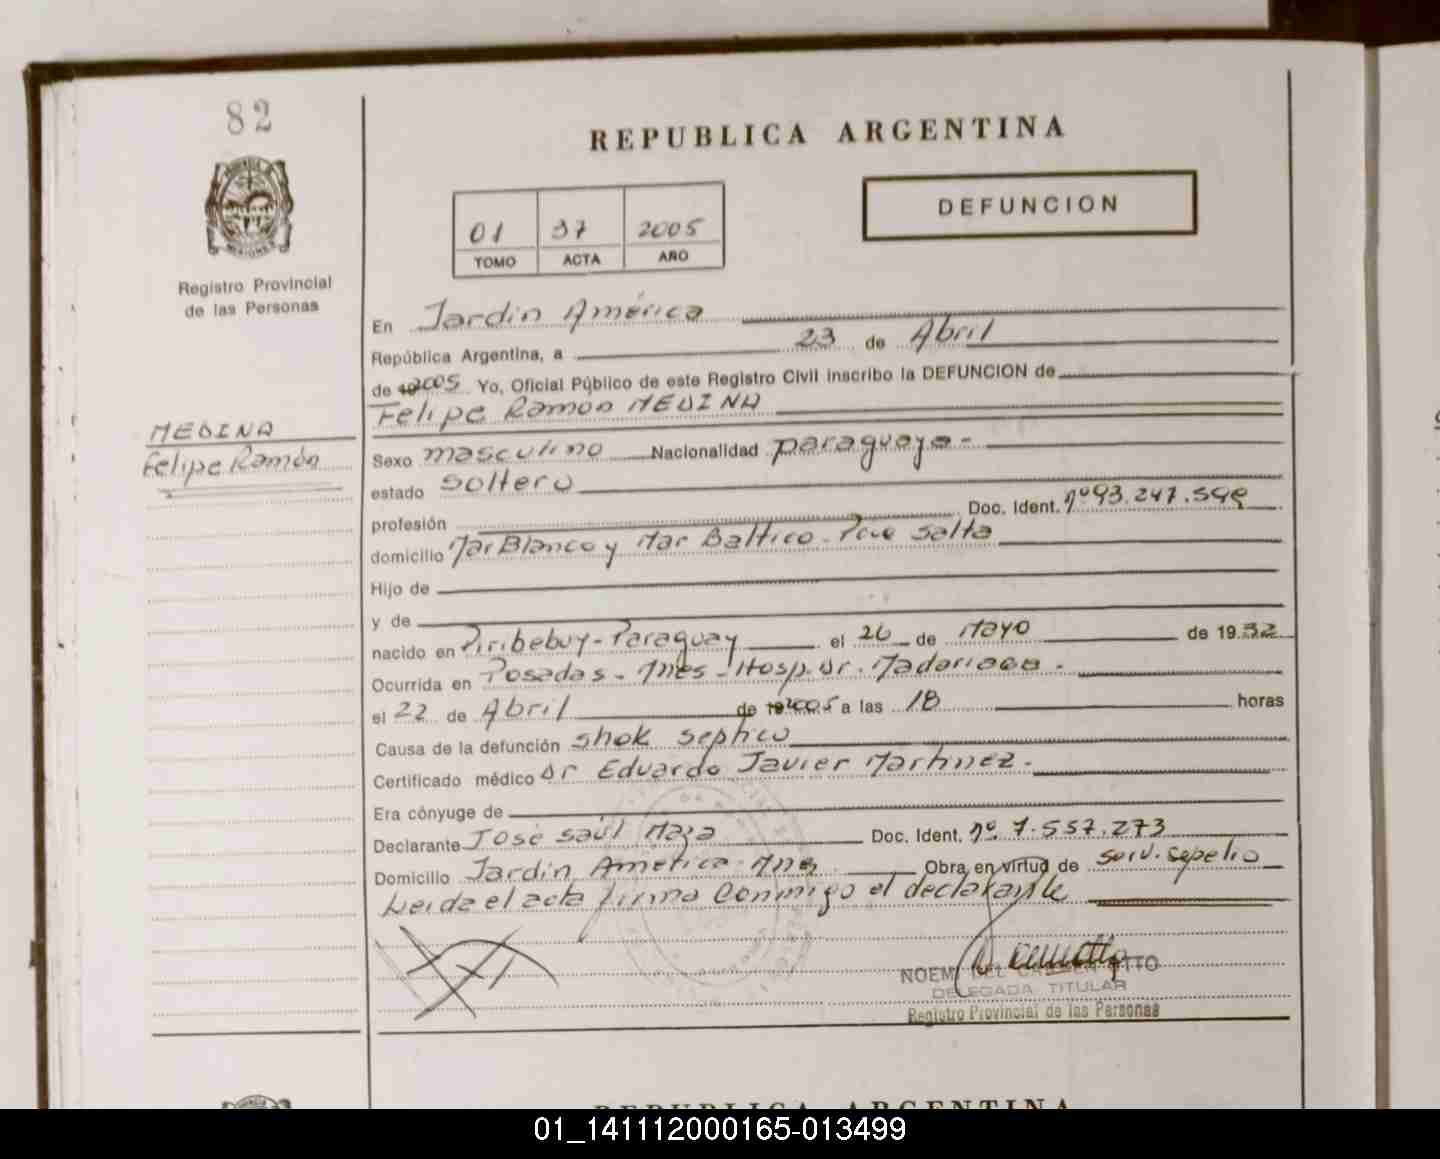 82
REPUBLICA ARGENTINA
DEFUNCION
01 37 2005
TOMO ACTA AÑO
Registro Provincial
de las Personas
En Jardin América
República Argentina, a 23 de Abril
de 2005 Yo, Oficial Público de este Registro Civil inscribo la DEFUNCION de
Felipe Ramon MEDINA
MEDINA
Felipe Ramón
Sexo masculino Nacionalidad paraguaya-
estado soltero
profesión Doc. Ident. nº93.247.599
domicilio Mar Blanco y Mar Baltico- Salta
Hijo de
y de
nacido en Piribebuy-Paraguay el 26 de Mayo de 1932
Ocurrida en Posadas- Mnes-Hosp. Dr. Madariaga-
el 22 de Abril de 2005 a las 18 horas
Causa de la defunción shok septico
Certificado médico Dr Eduardo Javier Martinez-
Era cónyuge de
Declarante José Saúl Maza Doc. Ident. nº. 7.557.273
Domicilio Jardin America- Mnes Obra en virtud de serv. sepelio
Leida el acta firma conmigo el declarante
NOEMI DEL
DELEGADA TITULAR
Registro Provincial de las Personas
REPUBLICA ARGENTINA
01_141112000165-013499